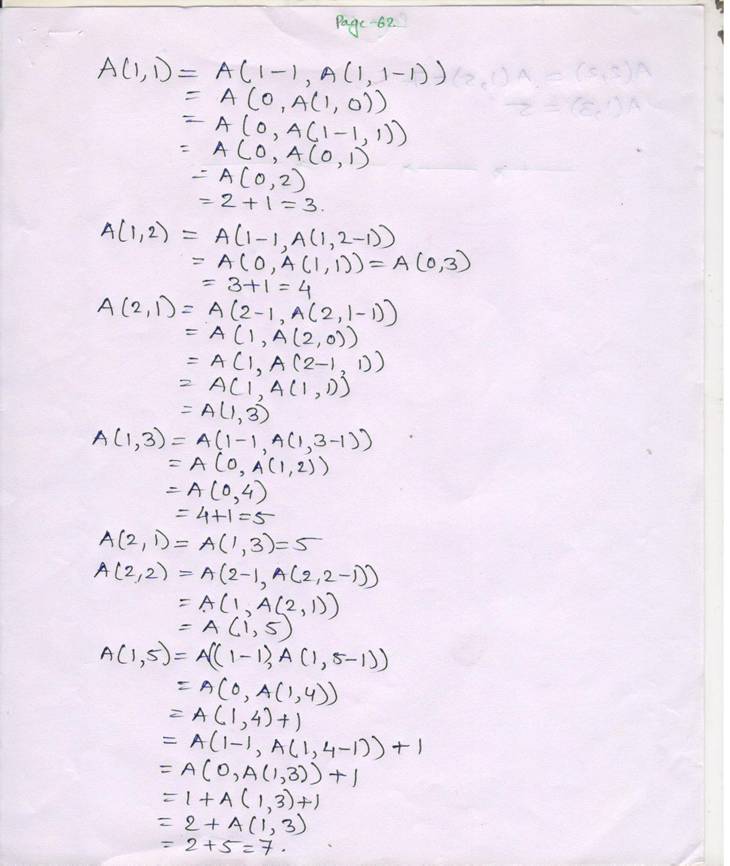 Page-62.
A(1,1) = A(1-1, A(1,1-1))
= A(0, A(1,0))
= A(0, A(1-1, 1))
= A(0, A(0,1)
= A(0,2)
= 2+1=3.
A(1,2) = A(1-1, A(1,2-1))
= A(0, A(1,1)) = A(0,3)
= 3+1=4
A(2,1) = A(2-1, A(2,1-1))
= A(1, A(2,0))
= A(1, A(2-1, 1))
= A(1, A(1,1))
= A(1,3)
A(1,3) = A(1-1, A(1,3-1))
= A(0, A(1,2))
= A(0,4)
= 4+1=5
A(2,1) = A(1,3)=5
A(2,2) = A(2-1, A(2,2-1))
= A(1, A(2,1))
= A(1,5)
A(1,5) = A((1-1), A(1,5-1))
= A(0, A(1,4))
= A(1,4)+1
= A(1-1, A(1,4-1))+1
= A(0, A(1,3))+1
= 1+A(1,3)+1
= 2+A(1,3)
= 2+5=7.